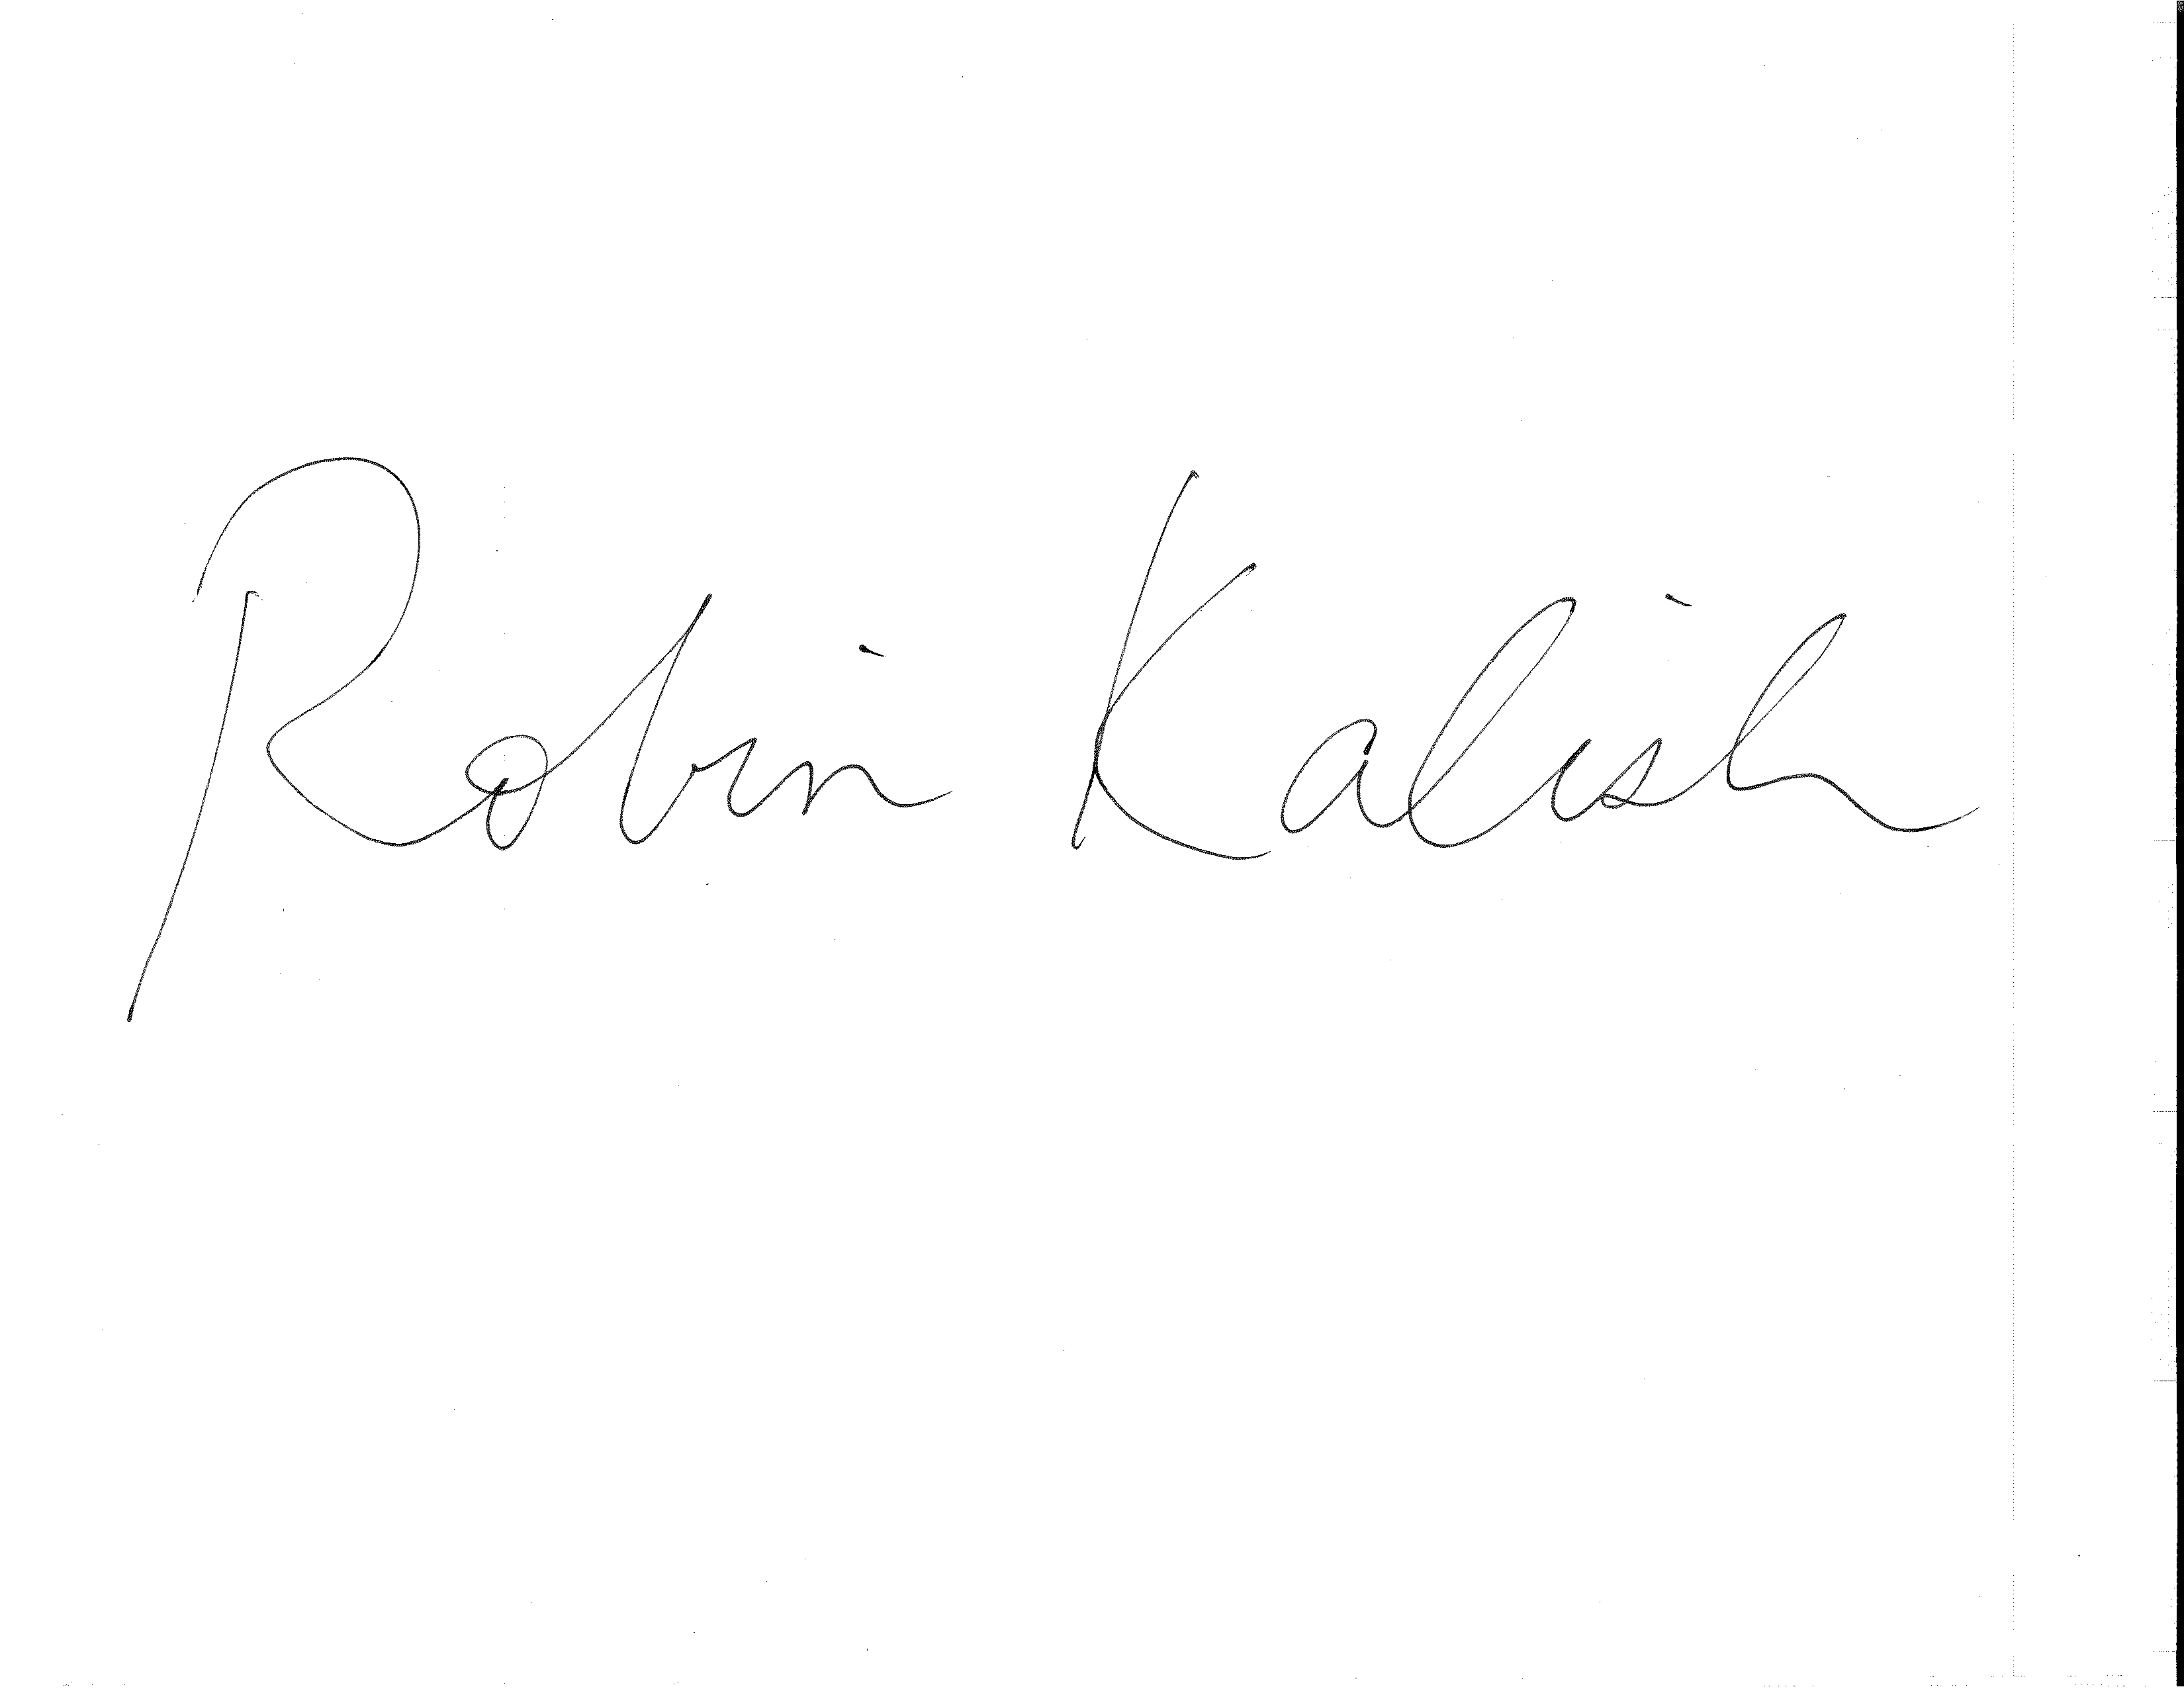 Robin Kalish